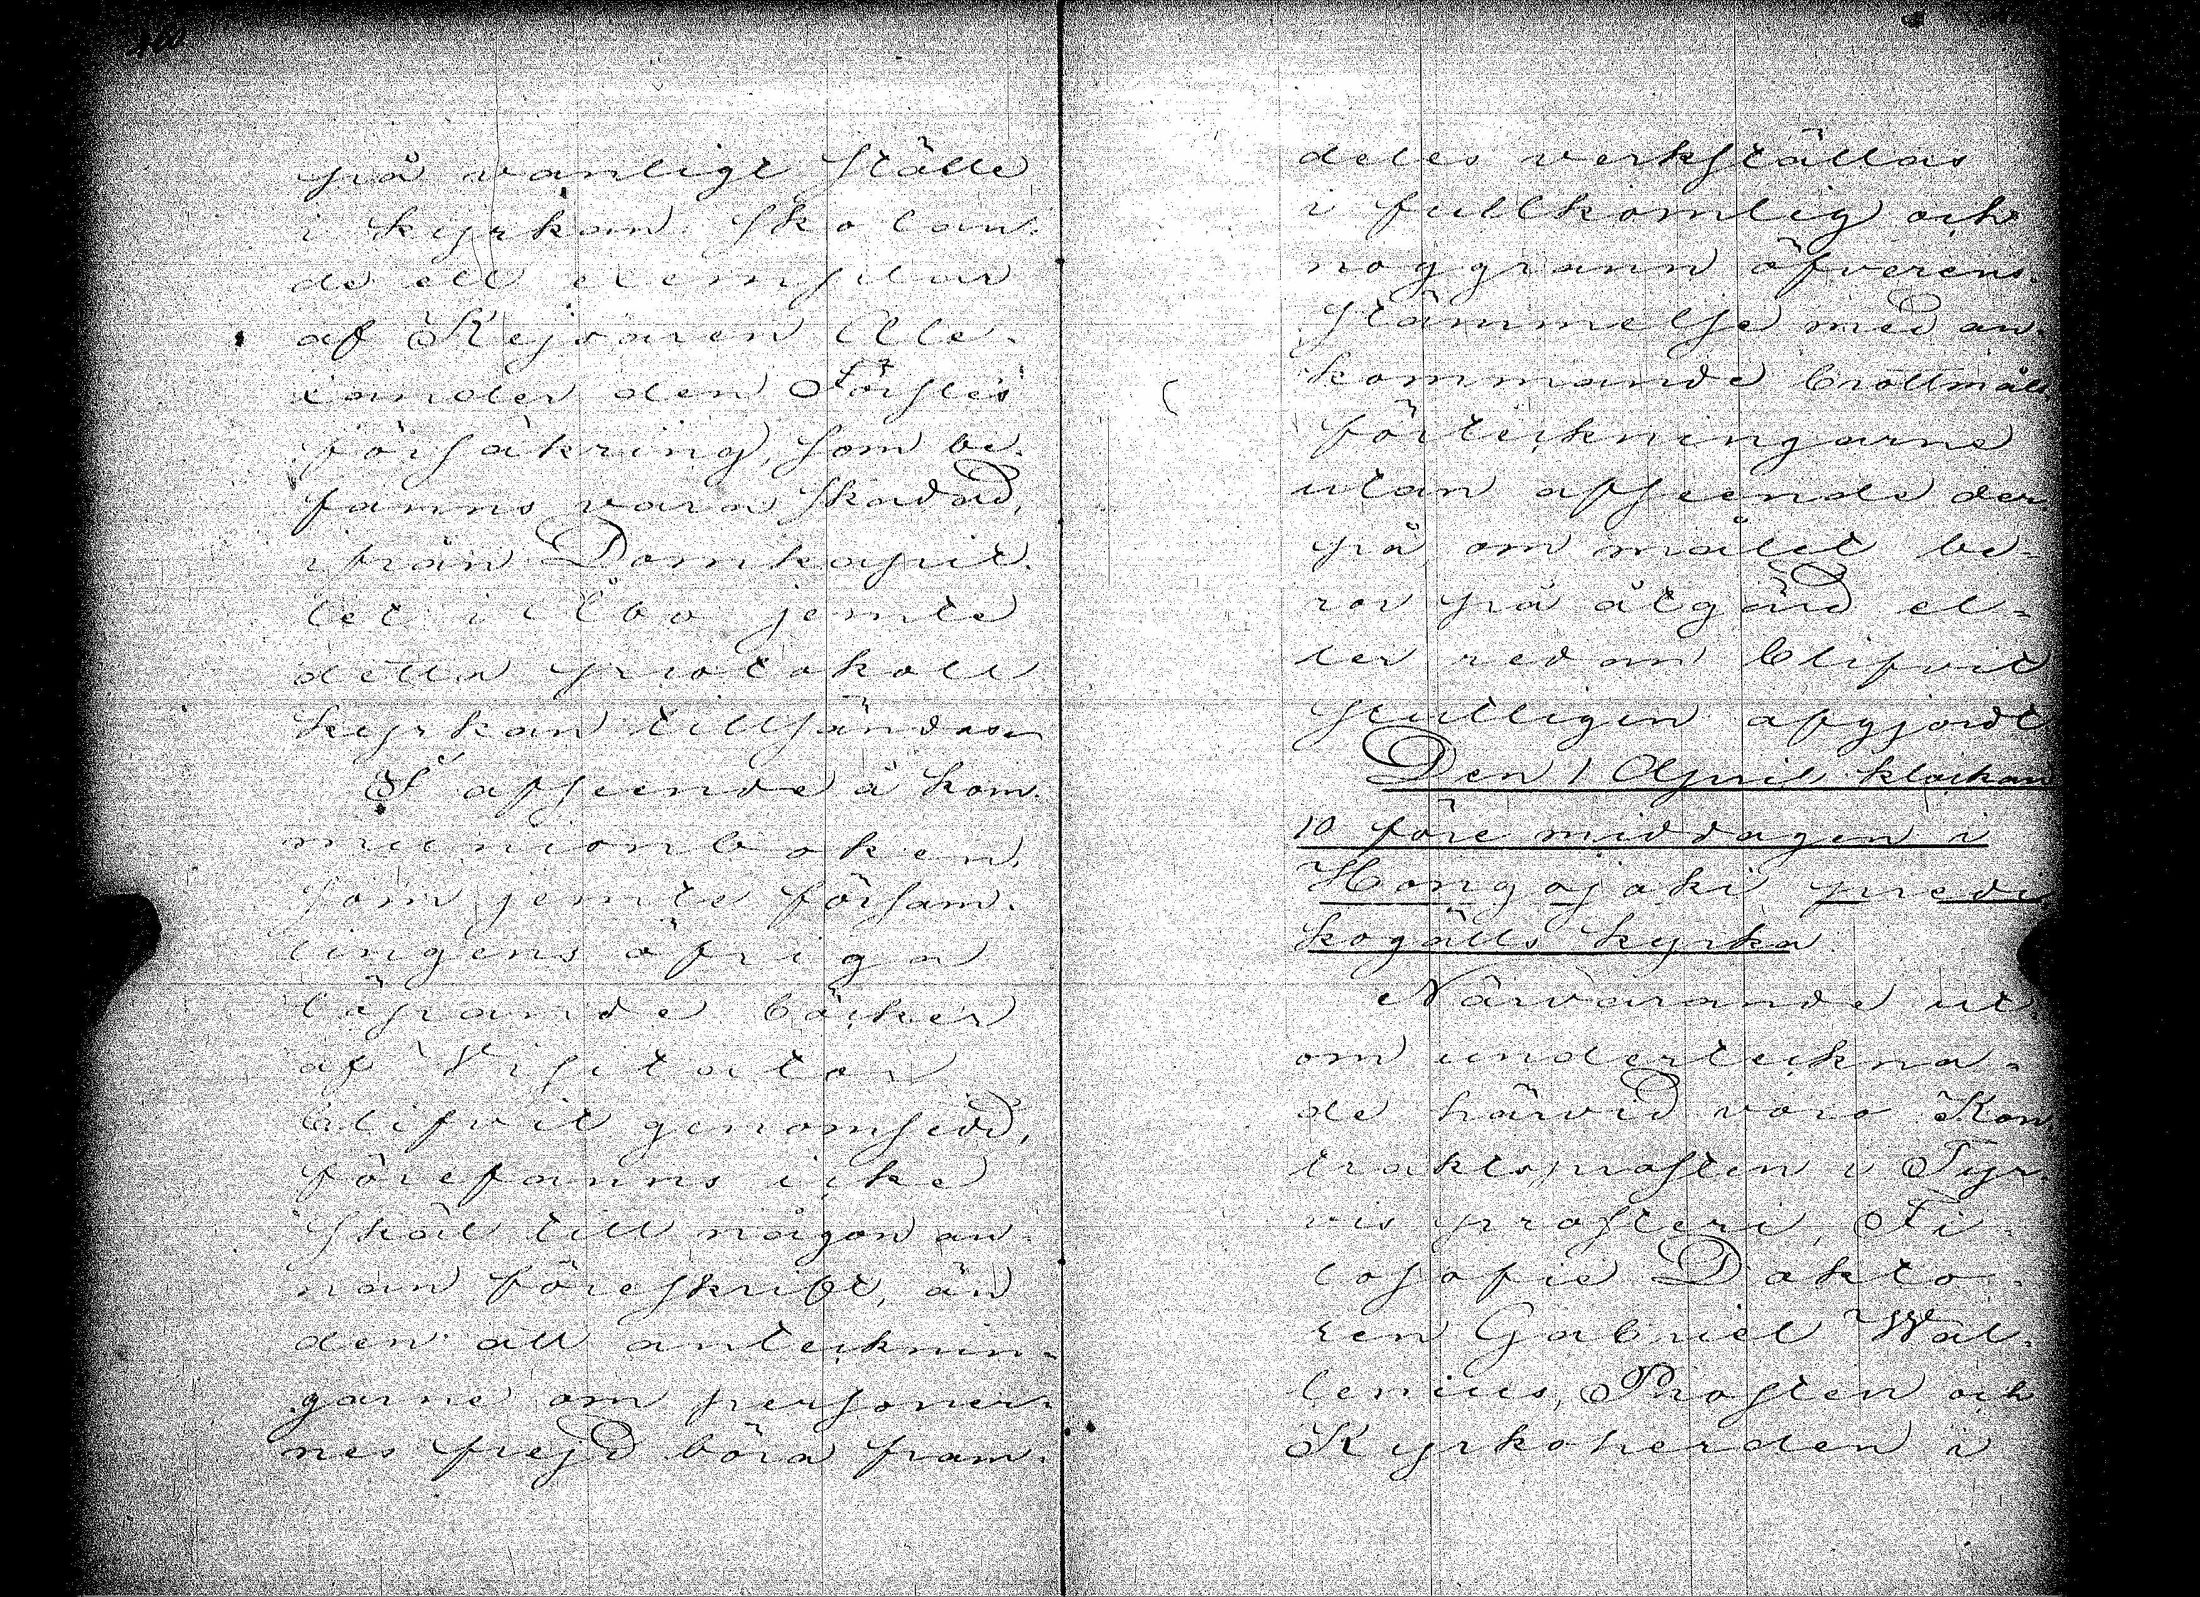 på vanligt ställe
i kyrkan. Skolan-
de ett exemplar
af Kejsaren Ale-
xander den Förstes
försäkring, som be-
fanns vara skadad,
ifrån Domkapit-
let i Åbo jemte
detta protokoll
kyrkan tillsändas.
I afseende å kom-
munionboken,
som jemte försam-
lingens öfriga
löpande böcker
af Visitator
blifvit genomsedd,
förefanns icke
skäl till någon an-
nan föreskrift, än
den att antecknin-
garne om personer-
nes frejd böra fram-
deles verkställas
i fullkomlig och
noggrann öfverens-
stämmelse med an-
kommande brottmåls
förteckningarne
utan afseende der-
på, om målet be-
ror på åtgärd el-
ler redan blifvit
slutligen afgjordt
Den 1 April klockan
10 före middagen i
Hongojoki predi-
kogälls kyrka
Närvarande ut-
om underteckna-
de härvid voro Kon-
traktsprosten i Tyr-
vis prosteri, Fi-
losofie Dokto-
ren Gabriel Wal-
lenius, Prosten och
Kyrkoherden i